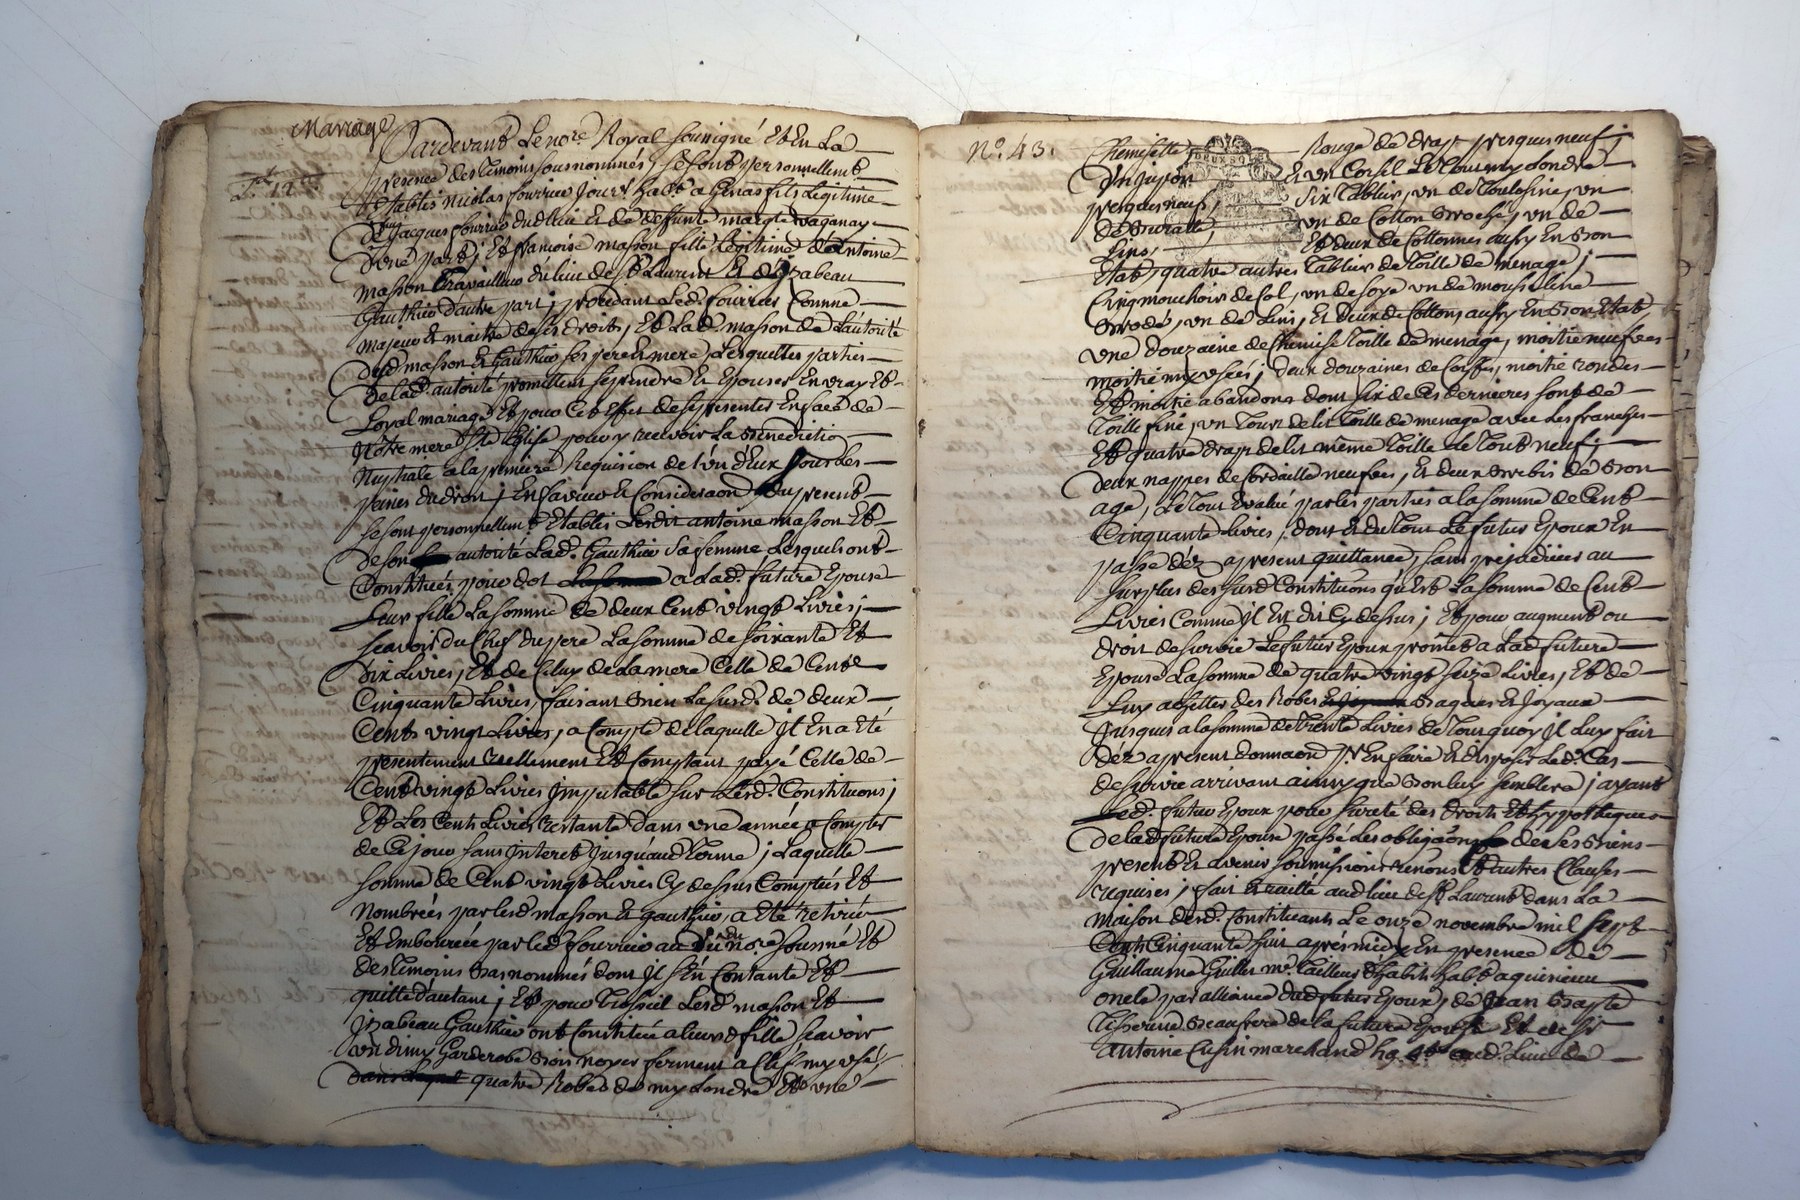 Mariage
Pardevant Le nore. Royal soussigné Et En La
presence des temoins sousnommés, se sont personnellemt
Etablis nicolas fourrier Jourr. habt a Genas fils Legitime
de Jacques fourrier dud. lieu Et de deffunte margte vaganay
d'une part; Et francoise masson fille Legitime d'antoine
masson travailleur du lieu de St Laurent Et d'Izabeau
Gauthier d'autre part; procedant Led. fourrier Comme
majeur Et maitre de ses droits, Et Lad. masson de L'autorité
desd masson Et Gauthier ses pere Et mere, Lesquelles parties
de lad. autorité promettent se prendre Et Epouser En vray Et
Loyal mariage, Et pour Cet Effet de se presenter En face de
Notre mere Ste Eglise pour y recevoir La Benedictio
Nuptiale a la premiere Requision de l'un d'Eux sous les
peines du droit; En faveur Et Consideraon du present
se sont personnellemt Etablis Lesdit antoine masson Et
de son autorité Lad. Gauthier sa femme Lesquels ont
Constitués pour dot a Lad. future Epouse
Leur fille La somme de deux Cent vingt Livres;
scavoir du Chef du pere La somme de soixante Et
dix Livres, Et de Celuy de La mere Celle de Cent
Cinquante Livres, faisant Bien La susd. de deux
Cents vingt Livres, a Compte de laquelle Il En a Eté
presentement reellement Et Comptant payé Celle de
Cent vingt Livres Imputable sur Lesd. Constituons;
Et Les Cent Livres restante dans une année a Compter
de Ce jour sans Interet Jusqu'aud terme; Laquelle
somme de Cent vingt Livres Cy dessus Comptées Et
Nombrées par lesd masson Et gauthier, a Eté retirée
Et Emboursée par led fourrier au vû du nore soussné Et
des temoins Bas nommés dont Il s'En Contante Et
quitte d'autant; Et pour Trosseil Lesd masson Et
Izabeau Gauthier ont Constitué a leurd fille scavoir
un dimy Garderobe Bois noyer fermant a Clef my usé,
dans Lequel quatre Robes de my Londre Et une
No. 43.
Chemisette Rouge de drap presques neuf;
Un jupon Et un Corsil Le tout my Londre
presques neuf; Six Tabliers, un de Toulosine, un
de Buratte, un de Cotton Broché, un de
Lins, Et deux de Cottonnes aussy En Bon
Etat, quatre autres Tabliers de Toille de menage;
Cinq mouchoirs de Col, un de soye un de mousseline
Brodé, un de Lins, Et deux de Cottons aussy En Bon Etat,
une douzaine de Chemise Toille de menage, moitié neufves
moitié my usées; deux douzaines de Coiffes, moitié rondes
Et moitié abandons dont six de Ces dernieres sont de
Toille fine, un Tour de lit Toille de menage avec Les franges
Et quatre drap de lit même Toille Le Tout neuf;
deux nappes de Cordaille neufves, Et deux Brebis de Bon
age, Le Tout Evalué par les parties a la somme de Cent
Cinquante Livres; dont Et du Tout Le futur Epoux En
passe déz apresent quittance, sans prejudicier au
surplus desdsusd Constituons qu'Est La somme de Cent
Livres Comme Il Est dit Cy dessus; Et pour augment ou
droit de survie Le futur Epoux promet a Lad. future
Epouse La somme de quatre vingt seize Livres, Et de
Luy achetter des Robes Bagues Et Joyaux
Jusques a la somme de Trente Livres de Tour quoy Il Luy fait
déz apresent donnaon pr. En faire Et disposer Led. Cas
de survie arrivant ainsy que Bon luy semblera; ayant
Led. futur Epoux pour sureté des droits Et hypotheques
de lad future Epouse passé Les obligaons de ses Biens
presents Et avenir soumissions renons Et autres Clauses
requises; fait Et recitté aud lieu de St Laurent dans La
maison desd. Constituants Le onze novembre mil sept
Cents Cinquante huit aprés midy En presence de
Guillaume Guiller me. Tailleur d'habits habt a quirieux
oncle par alliance dud futur Epoux, de Jean Bapte
Tisserine Beaufrere de la future Epouse Et de sr
antoine Cusin marchand aud. Lieu de